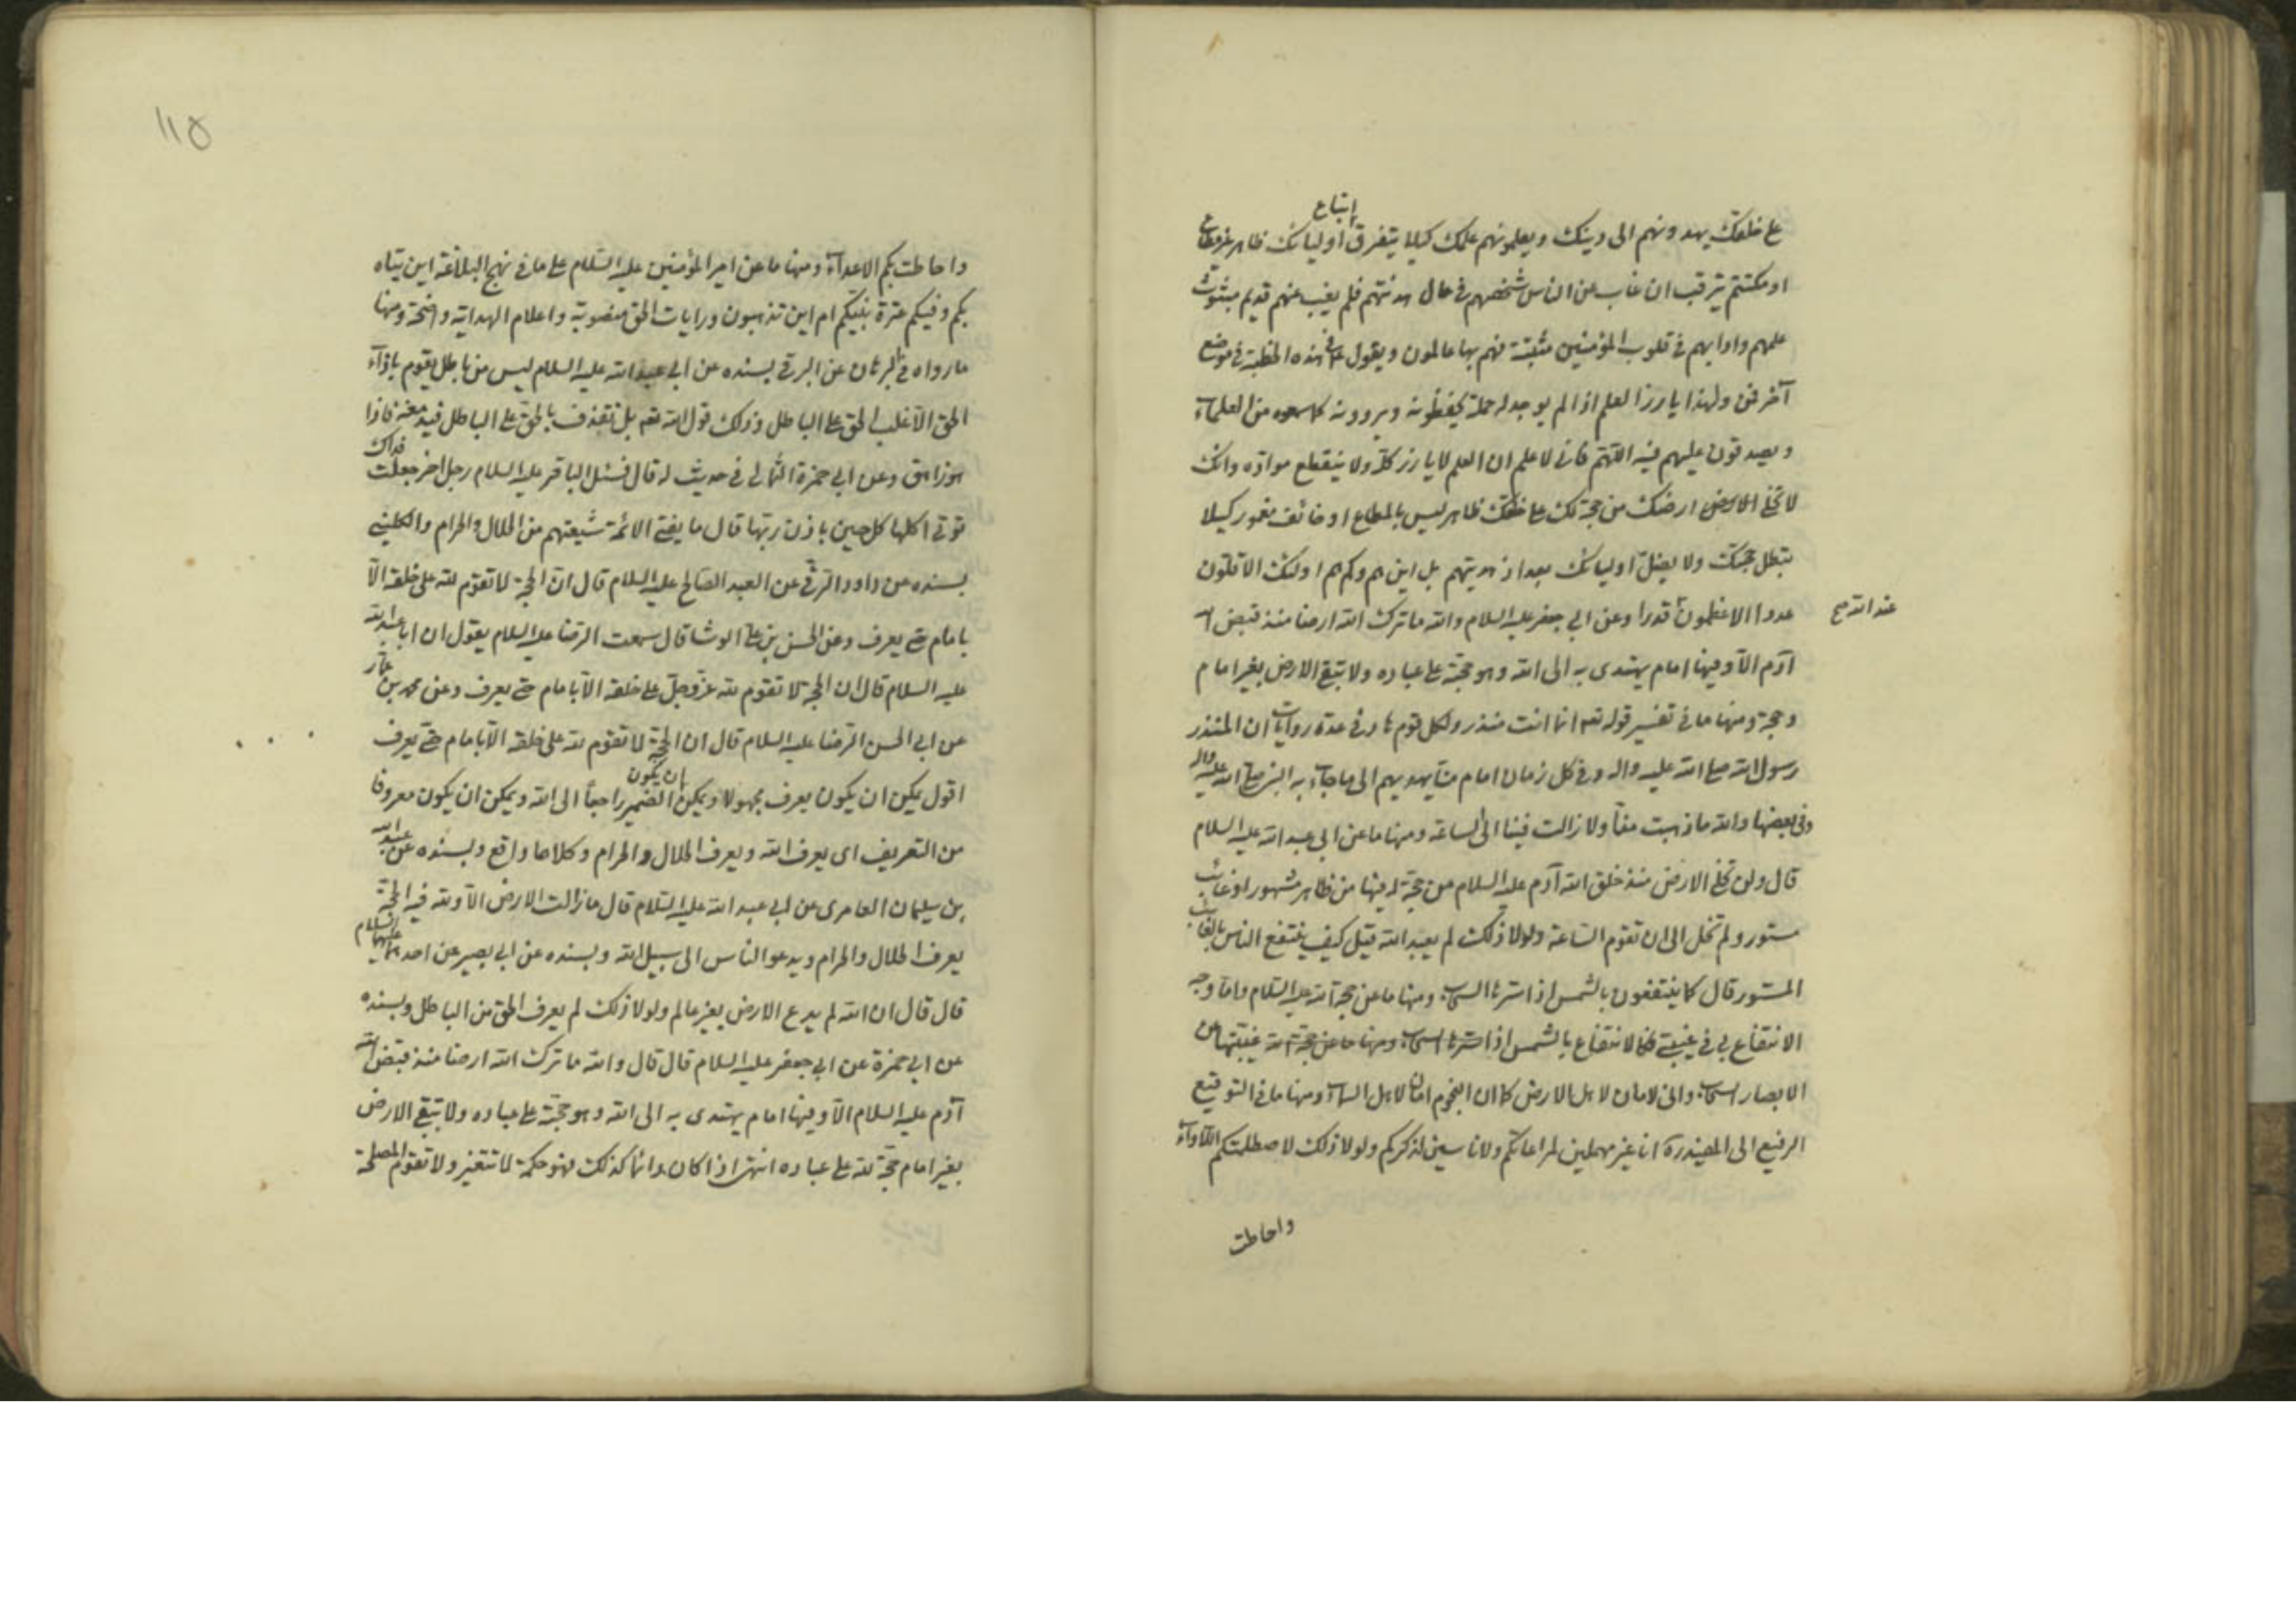 إتباع
على خلقك يهدونهم الى دينك ويعلمونهم علمك كيلا يتفرق اوليائك ظاهر غير مطاع
او مكتتم يترقب ان غاب عن الناس شخصهم في حال هدنتهم فلم يغب عنهم قديم مبثوث
علمهم وادابهم في قلوب المؤمنين مثبتة فهم بها عاملون ويقول ع في هذه الخطبة في موضع
آخر فمن ولهذا يارز العلم اذا لم يوجد له حملة يحفظونه ويروونه كما سمعوه من العلماء
ويصدقون عليهم فيه اللهم فاني لاعلم ان العلم لا يارز كله ولا ينقطع مواده وانك
لا تخلي الارض ارضك من حجة لك على خلقك ظاهر ليس بالمطاع او خائف مغمور كيلا
تبطل حجتك ولا يضل اوليائك بعد اذ هديتهم بل اين هم وكم هم اولئك الاقلون
عددا الاعظمون قدرا وعن ابي جعفر عليه السلام والله ما ترك الله ارضا منذ قبض الله
عند الله صح
آدم الا وفيها امام يهتدى به الى الله وهو حجته على عباده ولا تبقى الارض بغير امام
وحجة ومنها ما في تفسير قوله تعه انما انت منذر ولكل قوم هاد في عدة روايات ان المنذر
رسول الله صلى الله عليه واله وفي كل زمان امام منا يهديهم الى ما جاء به النبي صلى الله عليه واله
وفي بعضها والله ما ذهبت منا ولا زالت فينا الى الساعة ومنها ما عن ابي عبد الله عليه السلام
قال ولن تخلى الارض منذ خلق الله آدم عليه السلام من حجة له فيها من ظاهر مشهور او غائب
مستور ولم تخل الى ان تقوم الساعة ولولا ذلك لم يعبد الله قيل كيف ينتفع الناس بالغائب
المستور قال كما ينتفعون بالشمس اذا سترها السحاب ومنها ما عن حجة الله عليه السلام واما وجه
الانتفاع بي في غيبتي فكالانتفاع بالشمس اذا غيبتها عن
الابصار السحاب واني لامان لاهل الارض كما ان النجوم امان لاهل السماء ومنها ما في التوقيع
الرفيع الى المفيد ره انا غير مهملين لمراعاتكم ولا ناسين لذكركم ولولا ذلك لاصطلمتكم اللأواء
واحاطت
١١٥
واحاطت بكم الاعداء ومنها ما عن امير المؤمنين عليه السلام على ما في نهج البلاغة اين يتاه
بكم وفيكم عترة نبيكم ام اين تذهبون ورايات الحق منصوبة واعلام الهداية واضحة ومنها
ما رواه في البرهان عن البرقي بسنده عن ابي عبد الله عليه السلام ليس من باطل يقوم بازاء
الحق الا غلب الحق على الباطل وذلك قول الله تعه بل نقذف بالحق على الباطل فيدمغه فاذا
هو زاهق وعن ابي حمزة الثمالي في حديث له قال فسئل الباقر عليه السلام رجل اخر جعلت فداك
توتي اكلها كل حين باذن ربها قال ما يفتي الائمة شيعتهم من الحلال والحرام والكليني
بسنده عن داود الرقي عن العبد الصالح عليه السلام قال ان الحجة لا تقوم لله على خلقه الا
بامام حتى يعرف وعن الحسن بن علي الوشا قال سمعت الرضا عليه السلام يقول ان ابا عبد الله
عليه السلام قال ان الحجة لا تقوم لله عز وجل على خلقه الا بامام حتى يعرف وعن محمد بن عمار
عن ابي الحسن الرضا عليه السلام قال ان الحجة لا تقوم لله على خلقه الا بامام حتى يعرف
اقول يمكن ان يكون يعرف مجهولا ويمكن ان يكون الضمير راجعا الى الله ويمكن ان يكون معروفا
من التعريف اى يعرف الله ويعرف الحلال والحرام وكلاهما واقع وبسنده عن عبد الله
بن سليمان العامرى عن ابي عبد الله عليه السلام قال ما زالت الارض الا ولله فيه الحجة
يعرف الحلال والحرام ويدعو الناس الى سبيل الله وبسنده عن ابي بصير عن احدهما عليهما السلام
قال قال ان الله لم يدع الارض بغير عالم ولولا ذلك لم يعرف الحق من الباطل وبسنده
عن ابي حمزة عن ابي جعفر عليه السلام قال قال والله ما ترك الله ارضا منذ قبض الله
آدم عليه السلام الا وفيها امام يهتدى به الى الله وهو حجته على عباده ولا تبقى الارض
بغير امام حجة لله على عباده انتهى اذا كان دائما كذلك فهو حكمة لا تتغير ولا تقوم المصلحة